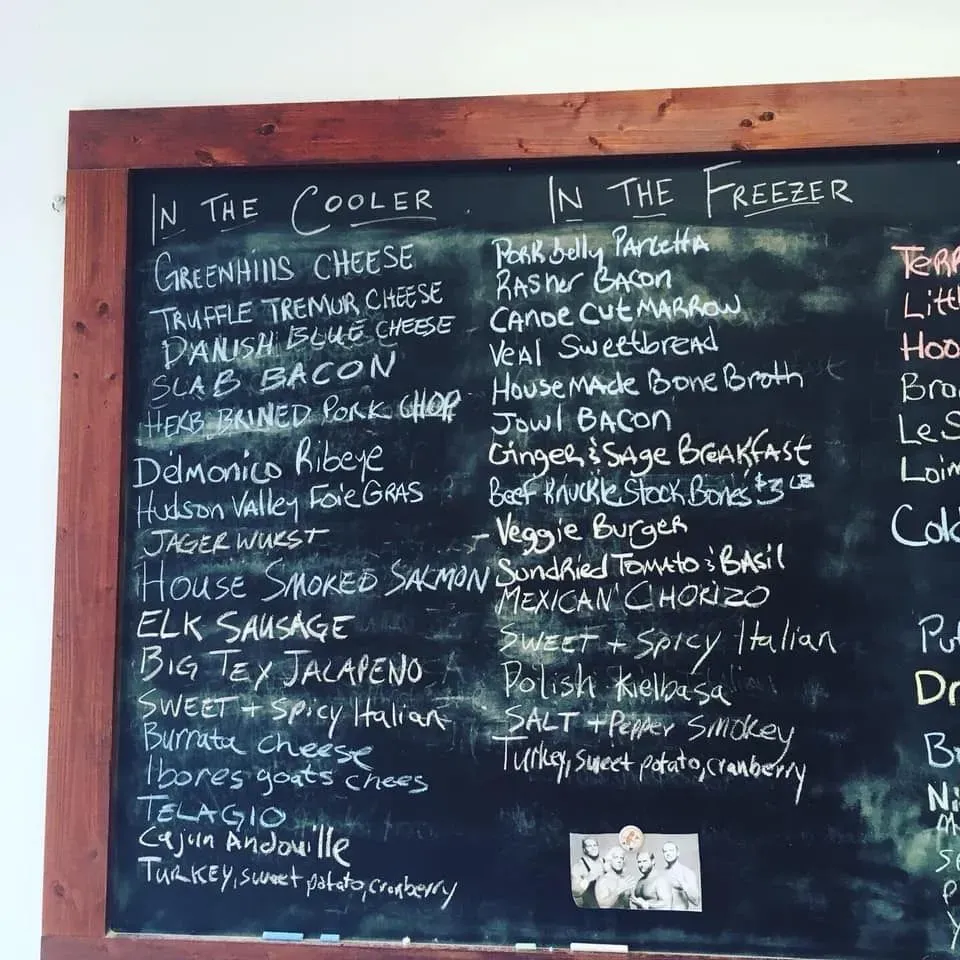 IN THE COOLER
GREENHIllS CHEESE
TRUFFLE TREMUR CHEESE
DANISH BLUE CHEESE
SLAB BACON
HERB BRINED PORK CHOP
Delmonico Ribeye
Hudson Valley Foie GRAS
JAGER WURST
HOUSE SMOKED SALMON
ELK SAUSAGE
BIG TEX JALAPENO
SWEET + Spicy Italian
Burrata cheese
Ibores goats chees
TELAGIO
Cajun Andouille
TURKEY, sweet potato, cranberry
IN THE FREEZER
Pork belly Parcetta
RASher BACON
CANOE CUT MARROW
VeAl Sweetbread
House mAde Bone Broth
Jowl BACON
Ginger & SAge BreAkfast
Beef Knuckle Stock Bones $3 LB
Veggie Burger
Sundried Tomato & BAsil
MEXICAN CHORIZO
SWEET + Spicy Italian
Polish Kielbasa
SALT + Pepper Smokey
Turkey, sweet potato, cranberry